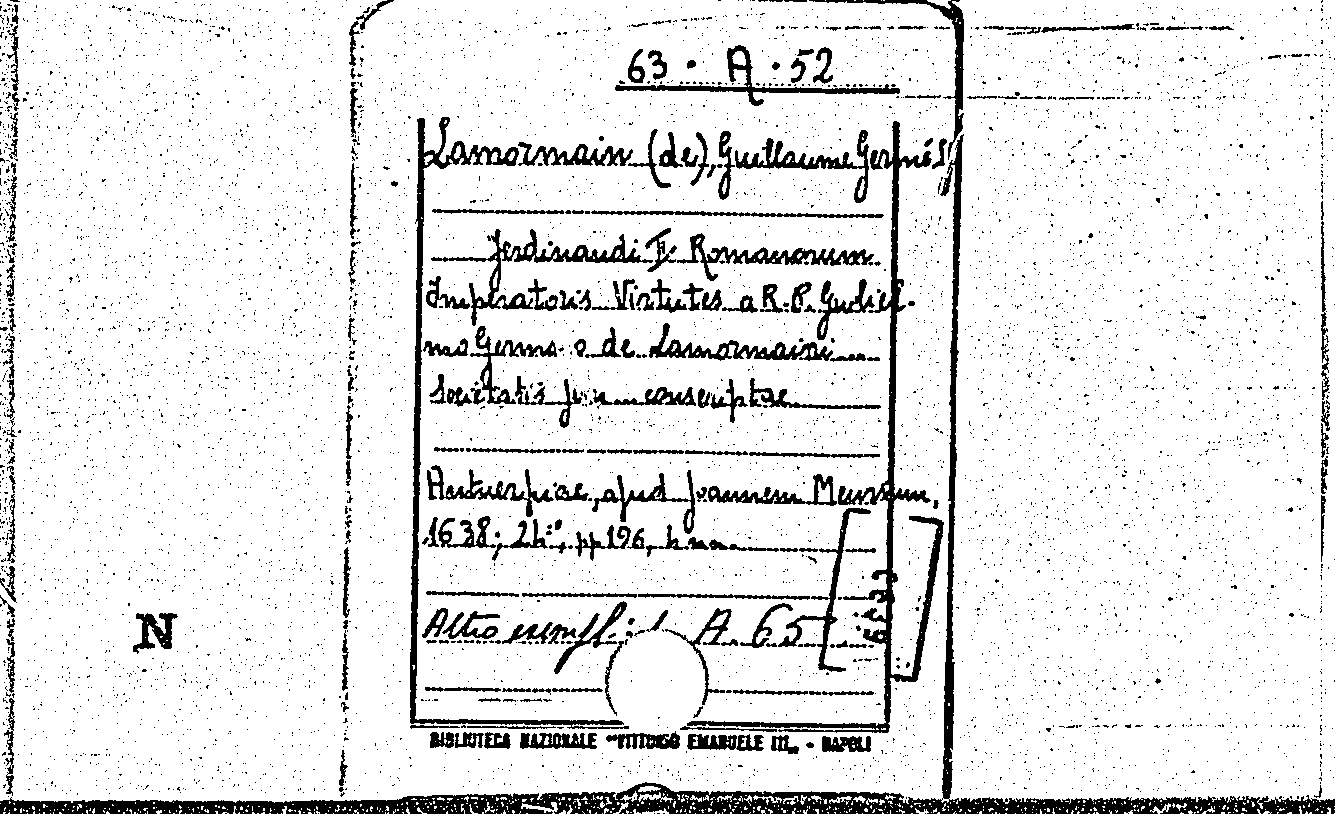 63 · A · 52
Lamormain (de), Guillaume Germé
Ferdinandi II Romanorum
Imperatoris Virtutes a R. P. Guliel-
mo Germ o de Lamormaini
Societatis conscriptae
Antuerpiae, apud Joannem Meursium,
1638; 24°, pp 196,
Altro esempl. : A. 65
N
BIBLIOTECA NAZIONALE "VITTORIO EMANUELE III" - NAPOLI